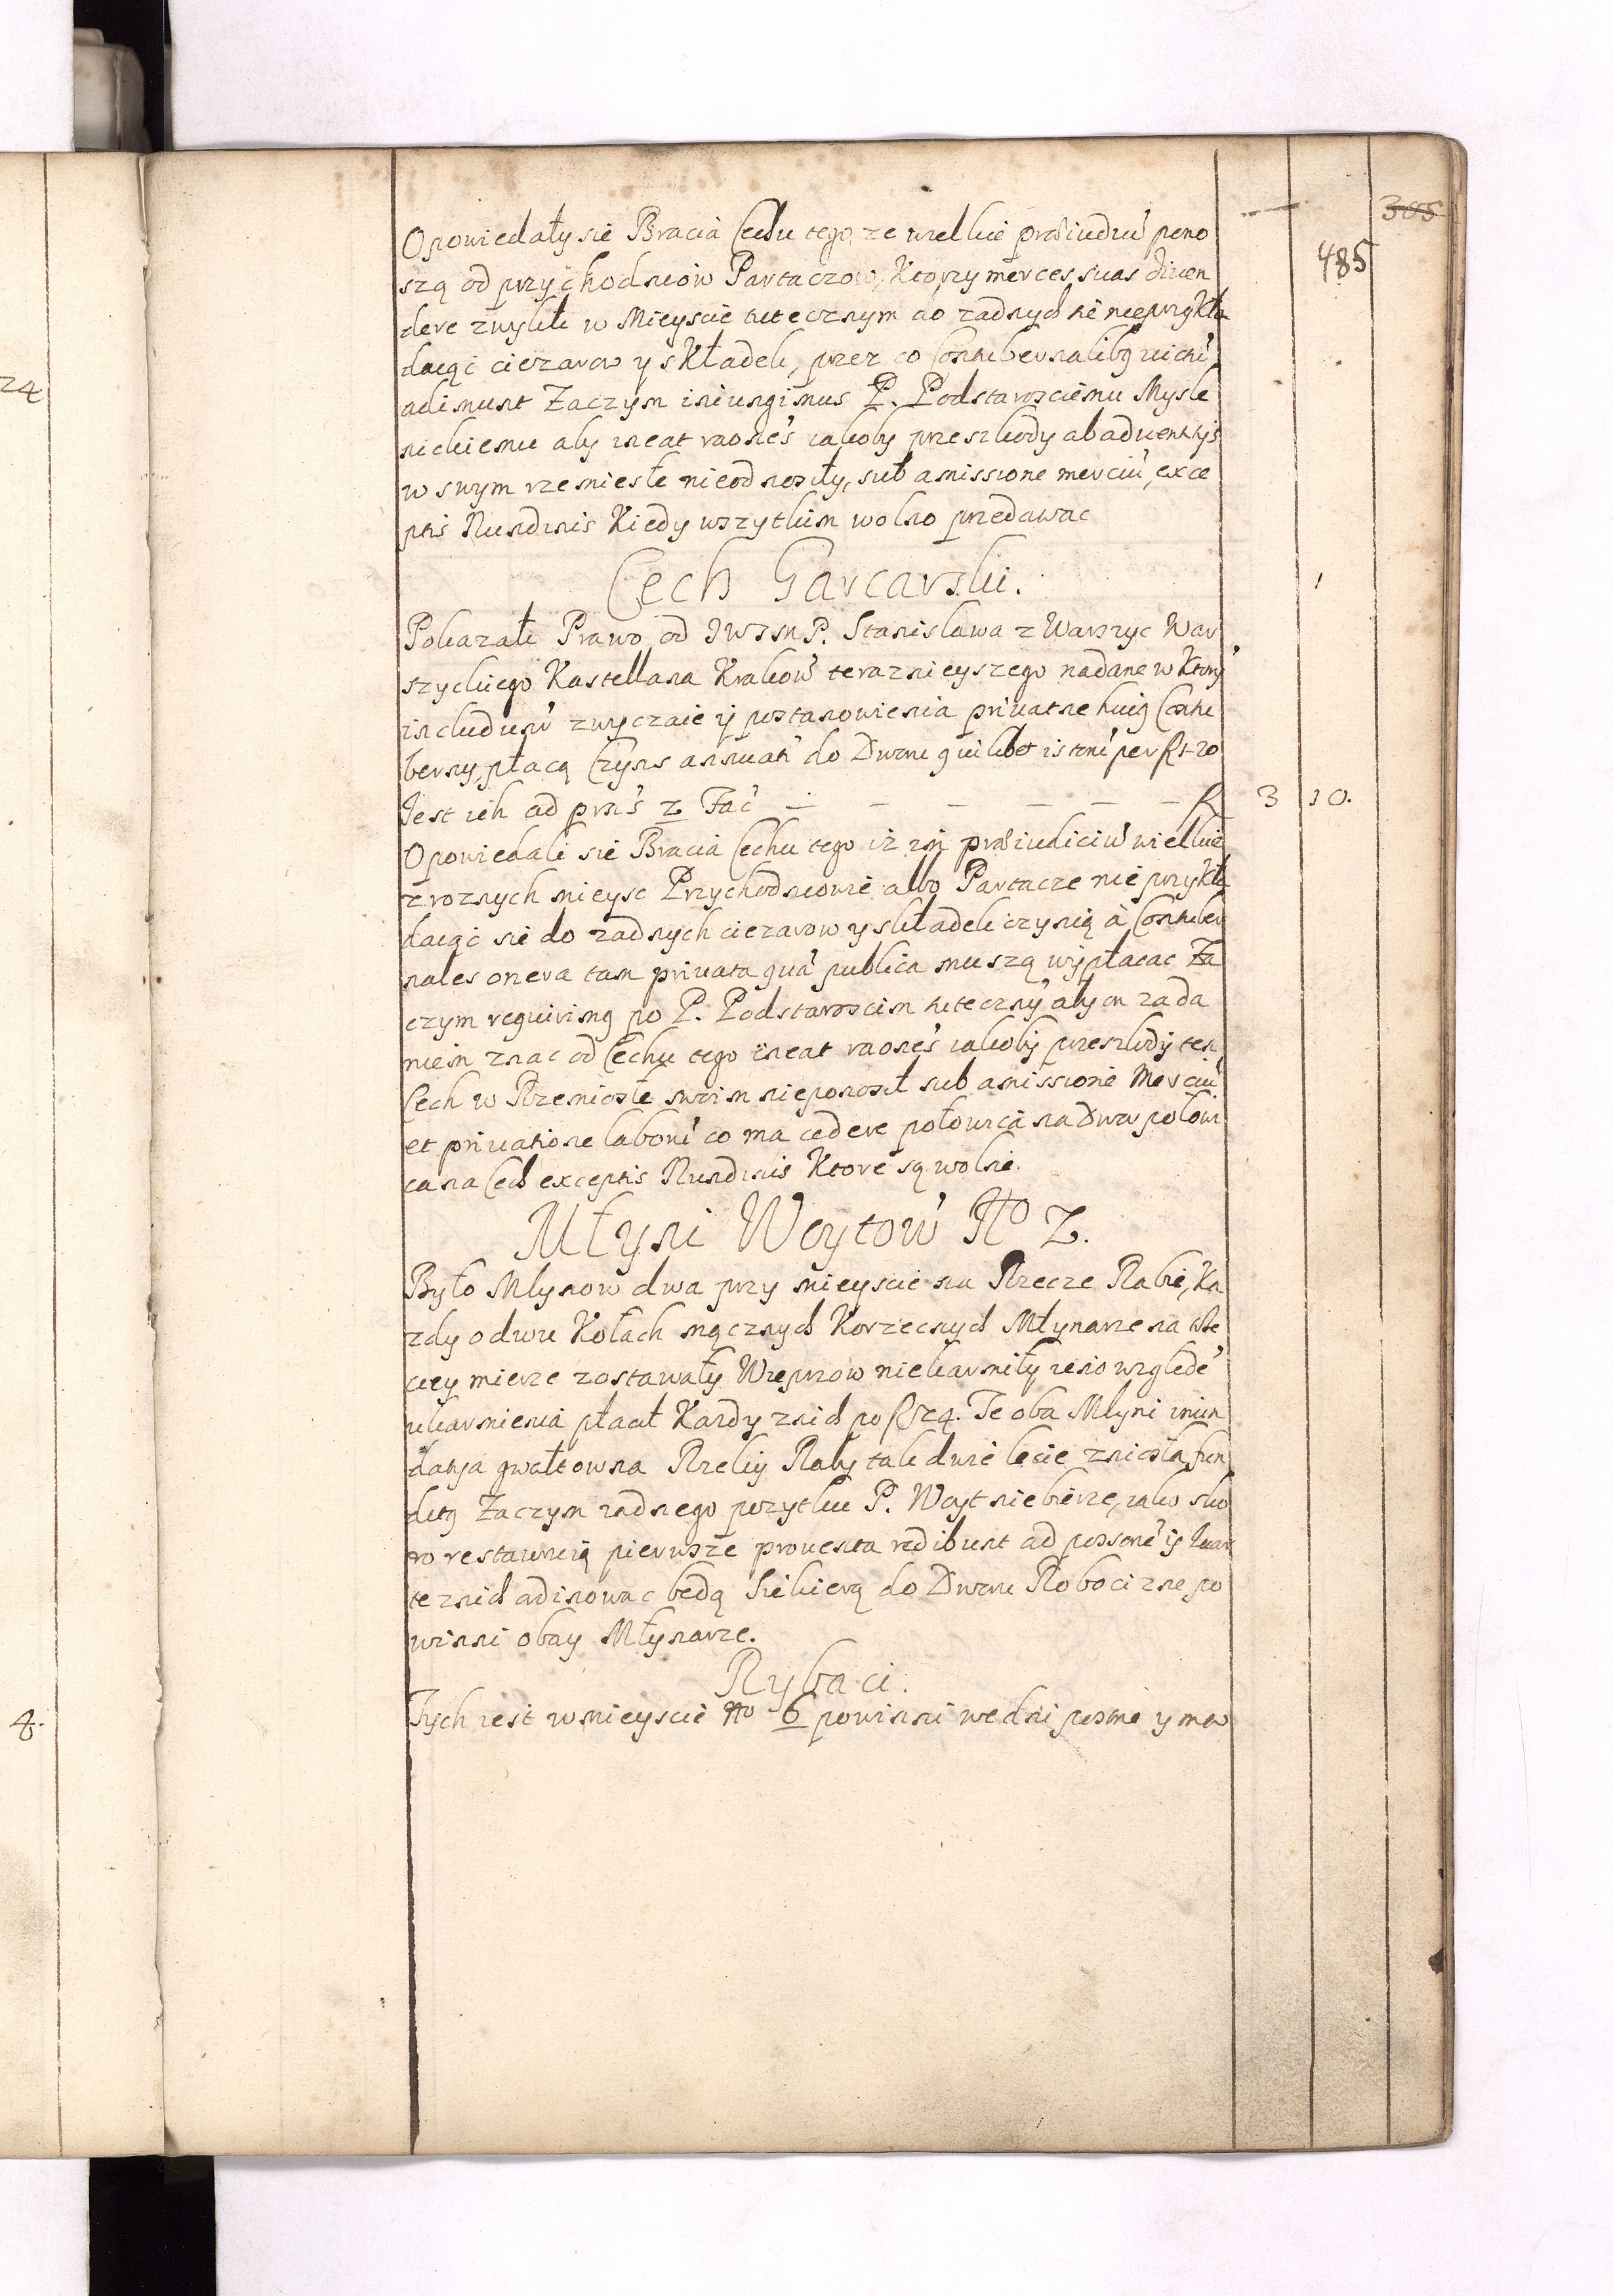 305
485
24
Opowiedały się Bracia Cechu tego, ze wielkie præiudiũ pono
szą od przychodniow Partaczow, Ktorzy merces suas diven
dere zwykli w Mieyscie tutecznym do zadnych sie nieprzykła
daiąc ciezarow y składek, przez co Contubernalibq victũ
adimunt Zaczym iniungimus P. Podstarosciemu Mysle
nickiemu aby ineat raones iakoby przeszkody ab adventijs
w swym rzemiesle nieodnosiły, sub amissione merciũ, exce
ptis Nundinis Kiedy wszytkim wolno przedawac
Cech Garcarski.
Pokazali Prawo od JWJMP. Stanislawa z Warszyc War
szyckiego Kastellana Krakow teraznieyszego nadane w Ktorỹ
includunt̃ zwyczaie ij postanowienia privatne huiq Contu
berny, płacą Czyns annuatĩ do Dworu quilibet istorũ per f 1-20
Jest ich ad præns 2 Fac̃ — — — — — — f 3 10.
Opowiedali sie Bracia Cechu tego iz im præiudiciũ wielkie
z roznych mieysc Przychodniowie albo Partacze nie przykła
daiąc sie do zadnych ciezarow y składek czynią à Contuber
nales onera tam privata quã publica muszą wypłacac Za
czym requirimq po P. Podstaroscim tutecznỹ aby on za da
niem znac od Cechu tego ineat raones iakoby przeszkody ten
Cech w Rzemiosle swoim nieponosił sub amissione Merciũ
et privatione laborũ co ma cedere połowica na Dwor połowi
ca na Cech exceptis Nundinis Ktore są wolne.
Młyni Woytow No 2.
Było Mlynow dwa przy mieyscie na Rzecze Rabie, Ka
zdy o dwu Kołach mącznych Korzecnych Młynarze na trze
ciey mierze zostawały Wieprzow niekarmiły ieno względẽ
ukarmienia płacił Kazdy z nich po f 24. Te oba Mlyni inun
datia gwałtowna Rzeki Raby tak dwie lecie zniosła fun
ditq Zaczym zadnego pozytku P. Woyt niebierze, iako sko
ro restauruią pierwsze proventa redibunt ad possorẽ ij Quar
te z nich adinowac będą Siekierą do Dworu Robocizne po
winni obay Młynarze.
Rybaci.
Tych iest w mieyscie No 6 powinni we dni postne y mro
4.